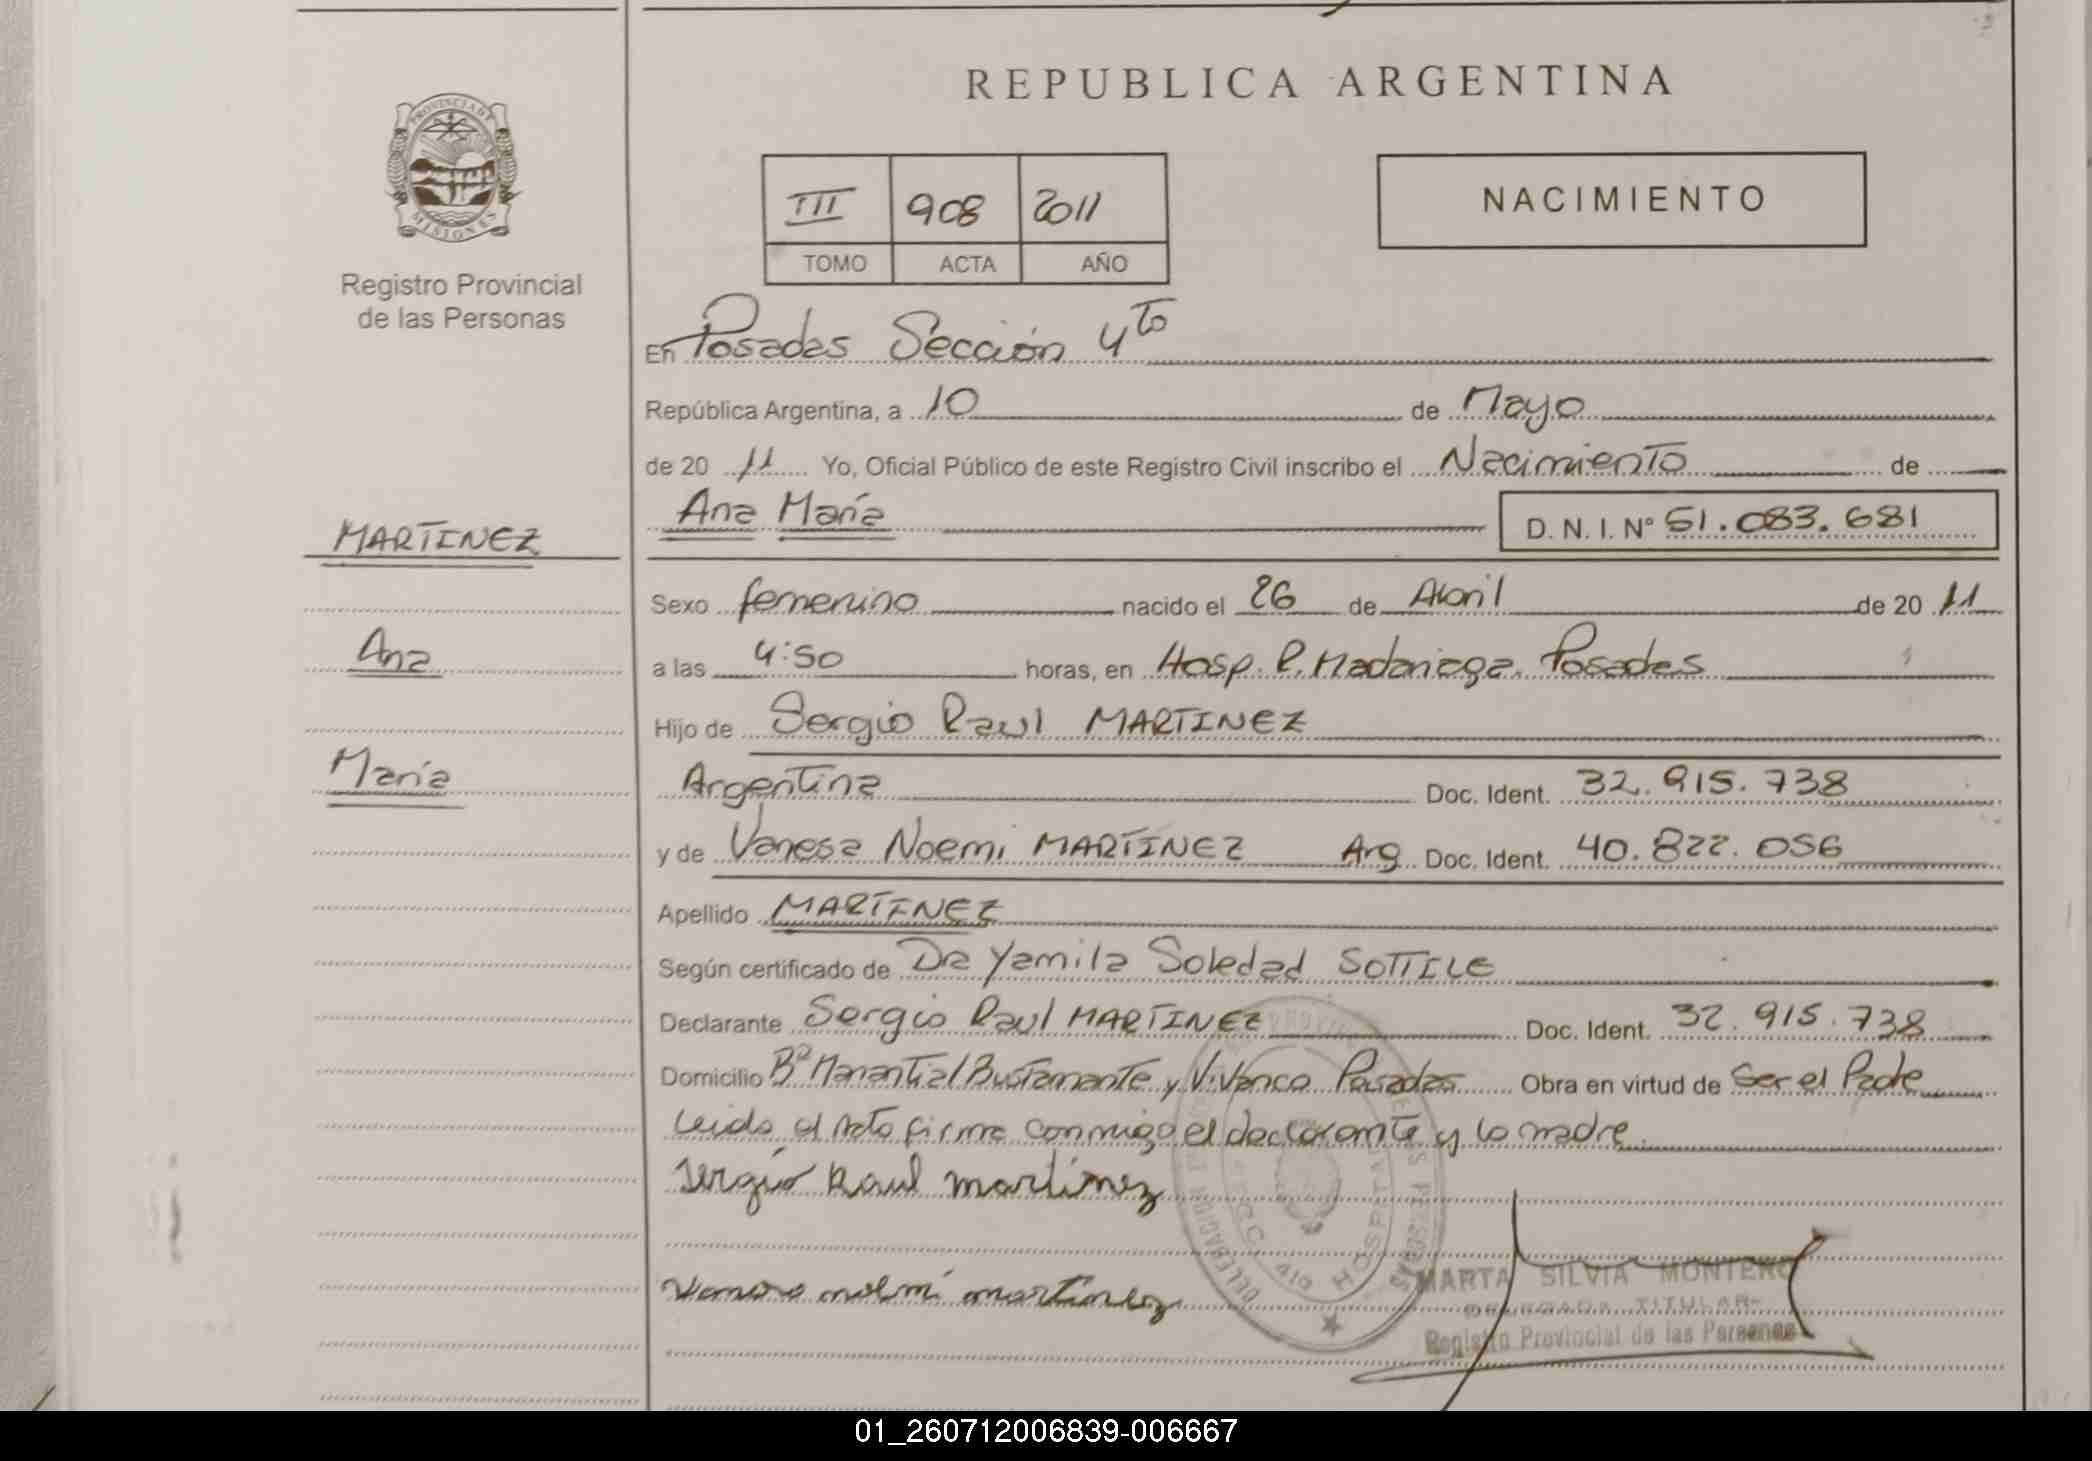 REPUBLICA ARGENTINA
PROVINCIA DE
MISIONES
Registro Provincial
de las Personas
III 908 2011
TOMO ACTA AÑO
NACIMIENTO
En Posadas Sección 4to
República Argentina, a 10 de Mayo
de 20 11 Yo, Oficial Público de este Registro Civil inscribo el Nacimiento de
MARTINEZ
Ana
María
Ana María D. N. I. Nº 51.083.681
Sexo femenino nacido el 26 de Abril de 20 11
a las 4:50 horas, en Hosp. R. Madariaga. Posadas
Hijo de Sergio Raul MARTINEZ
Argentina Doc. Ident. 32.915.738
y de Vanesa Noemi MARTINEZ Arg Doc. Ident. 40.822.056
Apellido MARTINEZ
Según certificado de Da Yamila Soledad SOTTILE
Declarante Sergio Raul MARTINEZ Doc. Ident. 32.915.738
Domicilio Bº Manantial Bustamante y Vivanco Posadas Obra en virtud de Ser el Padre
Leido el Acto firma conmigo el declarante y la madre
Sergio Raul Martinez
Vanesa noemi martinez
MARTA SILVIA MONTERO
DELEGADA TITULAR
Registro Provincial de las Personas
01_260712006839-006667